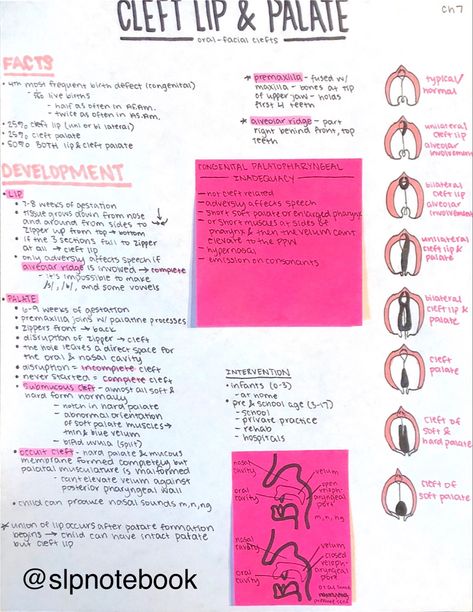 CLEFT LIP & PALATE
oral-facial clefts
Ch 7
FACTS
• 4th most frequent birth defect (congenital)
live births
- half as often in Af.Am.
- twice as often in As.Am.
• 25% cleft lip (uni or bilateral)
• 25% cleft palate
• 50% BOTH lip & cleft palate
* premaxilla - fused w/
maxilla - bones at tip
of upper jaw - holds
first 4 teeth
* alveolar ridge - part
right behind front, top
teeth
DEVELOPMENT
• LIP
• 7-8 weeks of gestation
• tissue grows down from nose
and around from sides to
zipper up from top → bottom
• if the 3 sections fail to zipper
at all → cleft lip
• only adversely affects speech if
alveolar ridge is involved → complete
- it's impossible to make
and some vowels
• PALATE
• 6-9 weeks of gestation
• premaxilla joins w/ palatine processes
• zippers front → back
• disruption of zipper → cleft
• the hole leaves a direct space for
the oral & nasal cavity
• disruption = incomplete cleft
• never started = complete cleft
• submucous cleft - almost all soft &
hard form normally
- notch in hard palate
- abnormal orientation
of soft palate muscles →
thin & blue velum
- bifid uvula (split)
• occult cleft - hard palate & mucous
membrane formed completely but
palatal musculature is malformed
- can't elevate velum against
posterior pharyngeal wall
• child can produce nasal sounds m, n, ng
* union of lip occurs after palate formation
begins → child can have intact palate
but cleft lip
CONGENITAL PALATOPHARYNGEAL
INADEQUACY
- not cleft related
- adversely affects speech
- short soft palate or enlarged pharynx
or short muscles of sides of
pharynx & then the velum can't
elevate to the PPW
- hypernasal
- emission on consonants
INTERVENTION
• infants (0-3)
- at home
• pre & school age (3-17)
- school
- private practice
- rehab
- hospitals
nasal cavity
oral cavity
velum
open
pharyngeal port
m, n, ng
nasal cavity
oral cavity
velum
closed
pharyngeal port
typical/
normal
unilateral
cleft lip &
alveolar
involvement
bilateral
cleft lip &
alveolar
involvement
unilateral
cleft lip &
palate
bilateral
cleft lip &
palate
cleft
palate
cleft of
soft & hard
palate
cleft of
soft palate
@slpnotebook